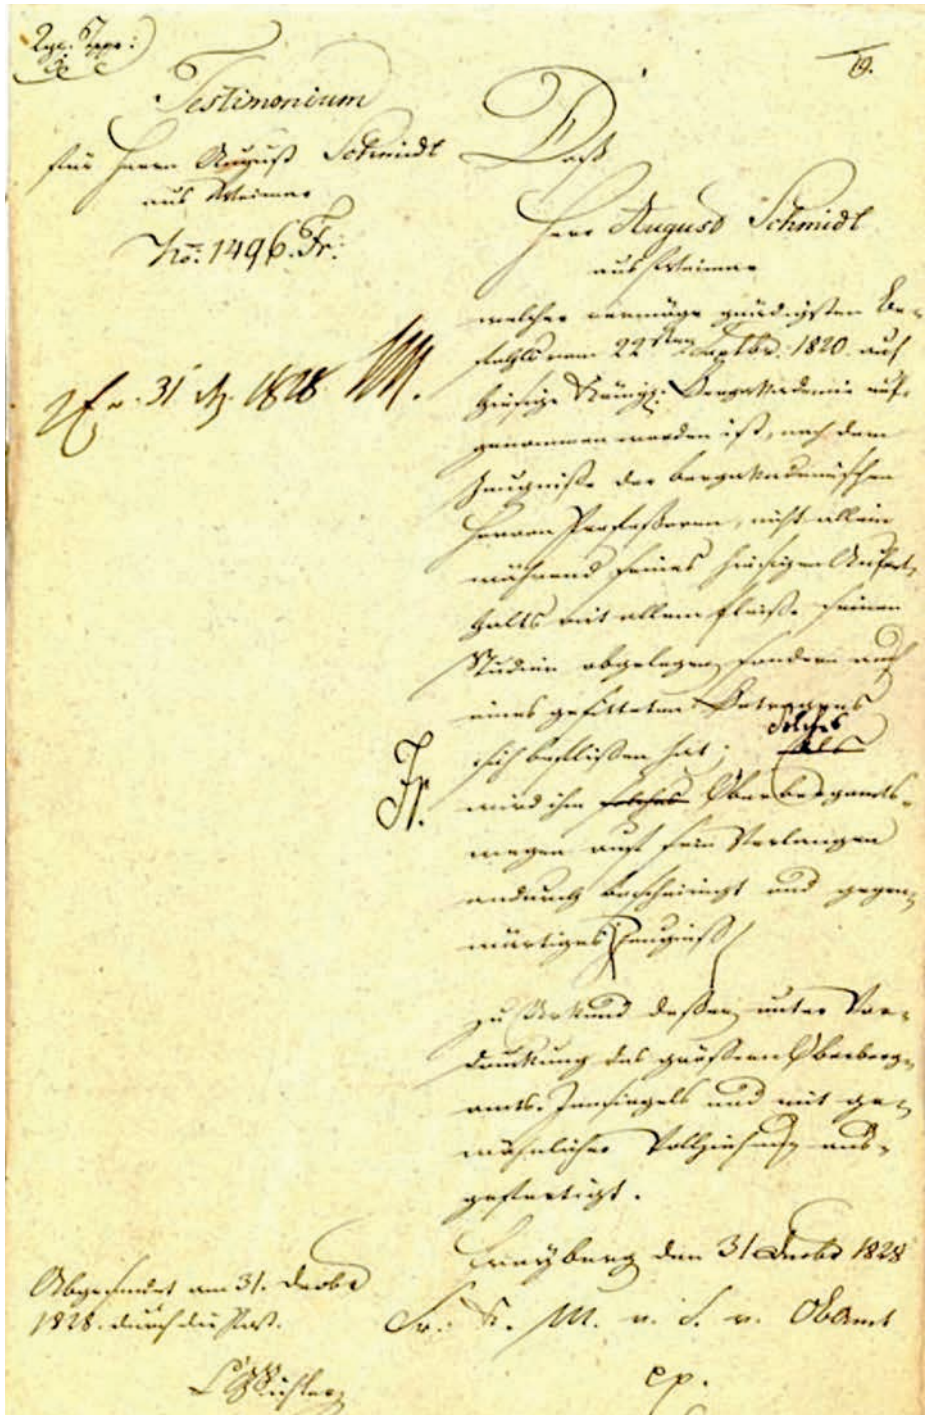 19.
Testimonium
für Herrn August Schmidt
aus Weimar
No: 1496. Fr:
31 1828
Daß
Herr August Schmidt
aus Weimar
welcher vermöge gnädigsten Be-
fehls vom 22sten Septbr. 1820. auf
hiesige Königl: Bergakademie auf-
genommen worden ist, nach dem
Zeugniße der bergakademischen
Herren Profeßoren, nicht allein
während seines hiesigen Aufent-
halts mit allem Fleiße seinen
Studien obgelegen, sondern auch
eines gesitteten Betragens
sich beflißen hat;
solches
wird ihm solches Oberbergamts-
wegen auf sein Verlangen
andurch bescheinigt und gegen-
wärtiges Zeugniß
zu Urkund deßen, unter Vor-
druckung des größern Oberberg-
amts-Innsiegels und mit ge-
wöhnlicher Vollziehung aus-
gefertigt.
Freyberg den 31 Decbr 1828
K. M. v. S. v. ObAmt
Fr.
Abgesendet am 31. Decbr
1828. durch die Post.
exp.